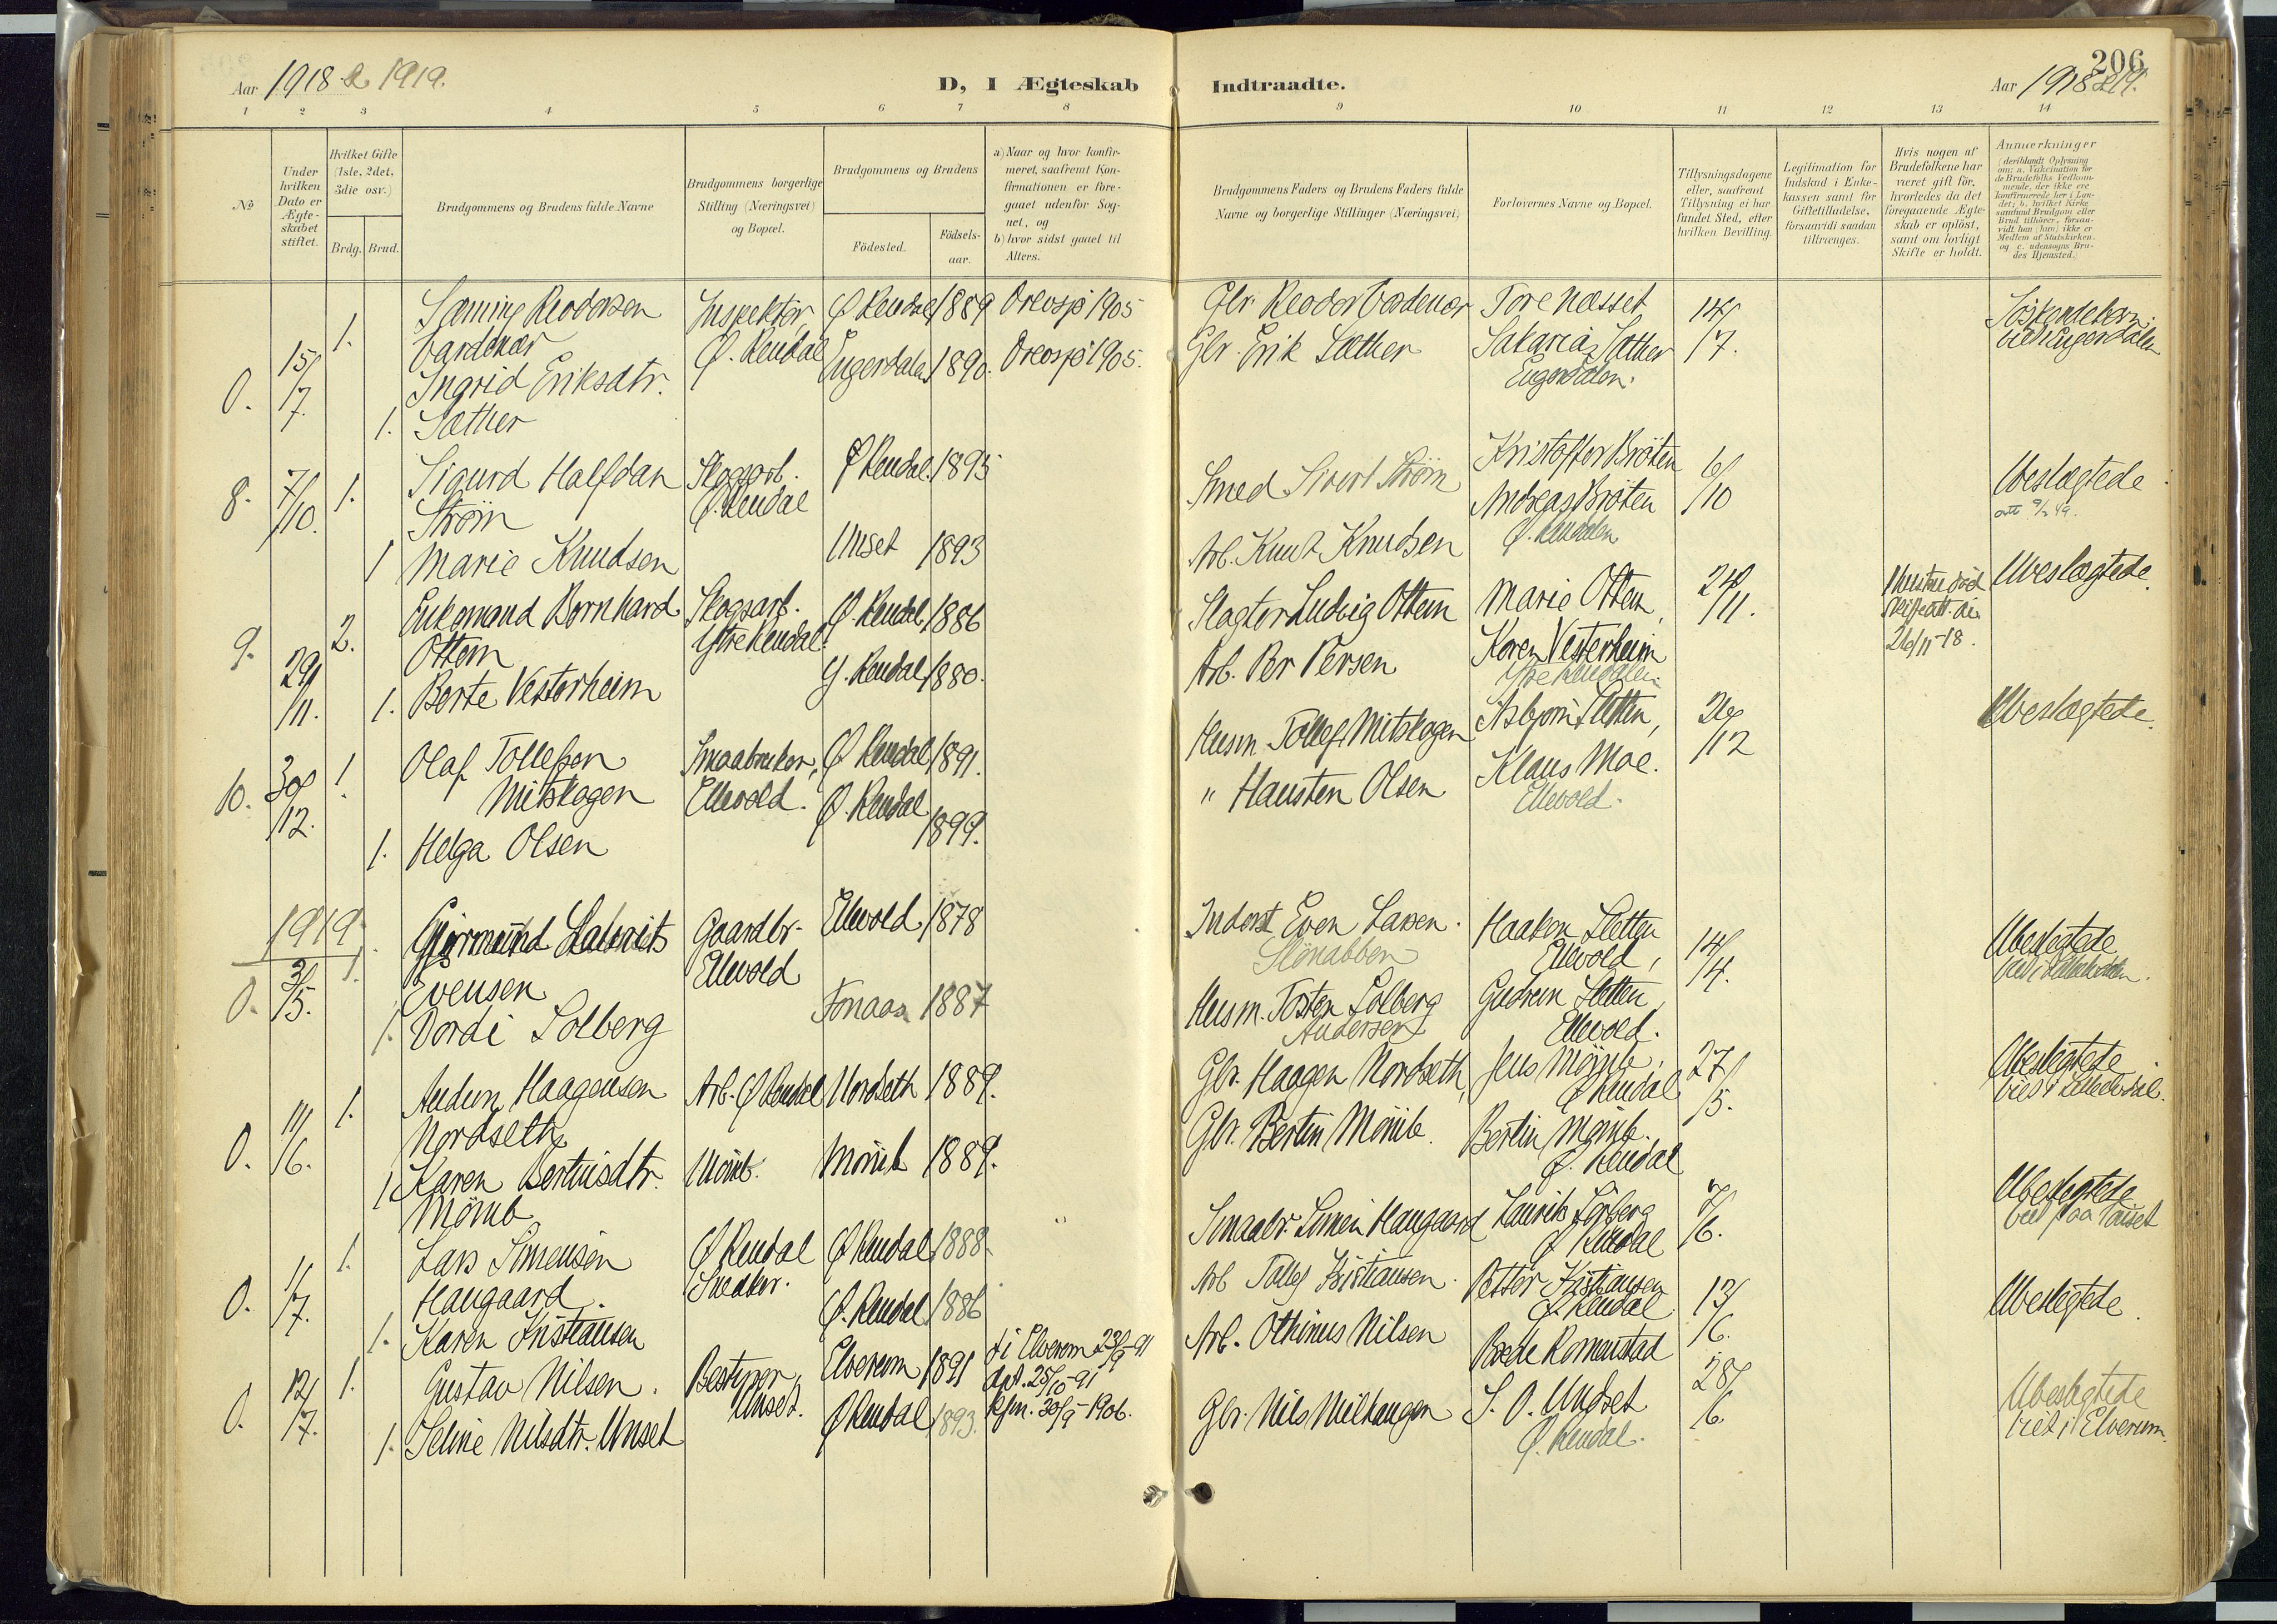 206
Aar 1918 & 1919.
D, I Ægteskab Indtraadte.
Aar 1918 & 19.
1 2 3 4 5 6 7 8 9 10 11 12 13 14
No
Under hvilken Dato er Ægteskabet stiftet.
Hvilket Gifte (1ste, 2det, 3die osv.)
Brdg. Brud.
Brudgommens og Brudens fulde Navne
Brudgommens borgerlige Stilling (Næringsvei) og Bopæl.
Brudgommens og Brudens
Fødested.
Fødselsaar.
a) Naar og hvor konfirmeret, saafremt Konfirmationen er foregaaet udenfor Sognet, og
b) hvor sidst gaaet til Alters.
Brudgommens Faders og Brudens Faders fulde Navne og borgerlige Stillinger (Næringsvei)
Forlovernes Navne og Bopæl.
Tillysningsdagene eller, saafremt Tillysning ei har fundet Sted, efter hvilken Bevilling.
Legitimation for Indskud i Enkekassen samt for Giftetilladelse, forsaavidt saadan tiltrænges.
Hvis nogen af Brudefolkene har været gift før, hvorledes da det foregaaende Ægteskab er opløst, samt om lovligt Skifte er holdt.
Anmærkninger
(deriblandt Oplysning om: a. Vakcination for de Brudefolks Vedkommende, der ikke ere konfirmerede her i Landet; b. hvilket Kirkesamfund Brudgom eller Brud tilhører, forsaavidt han (hun) ikke er Medlem af Statskirken, og c. udensogns Brudes Hjemsted.)
0. 15/7. 1. Reodorsen Inspektør, Ø Rendal 1889 1905 Gbr. Reodor Tore Næsset 14/7. Søskendebarn.
Ø. Rendal
Ingrid Eriksdtr. Engerdalen 1890. 1905. Gbr. Erik Sæther Sakarias Sæther
1. Sæther Engerdalen.
8. 7/10. 1. Sigurd Halfdan Skogsarb. Ø Rendal. 1895 Smed Sivert Strøm Kristoffer Bråten 6/10 Ubeslægtede
Strøm Ø. Rendal Andreas Bråten
1 Marie Knudsen Unset 1893 Arb. Knut Knudsen Ø. Rendalen
9. 29/11. 2. Enkemand Bernhard Skogsarb. Ø. Rendal 1886 Slagter Ludvig Ottem Marie Ottem, 24/11. Hustru død Ubeslægtede.
Ottem Ytre Rendal.
26/11-18.
1. Berte Vesterheim Y. Rendal 1880. Arb. Per Persen Karen Vesterheim
Ytre Rendalen.
10. 30/12. 1. Olaf Tollefsen Smaabruker, Ø Rendal 1891. Husm. Tollef Mitskogen Asbjørn Sletten, 26/12 Ubeslægtede.
Mitskogen Ellevold.
1. Helga Olsen Ø. Rendal 1899. " Hausten Olsen Klaus Moe.
Ellevold.
1919
0. 3/5. 1. Evensen Gaardbr. Ellevold 1878 Inderst Even Larsen. Haaken Sletten 14/4. Ubeslegtede
Ellevold Ellevold,
1. Dordi Solberg 1887 Husm. Tosten Solberg Gudrun Sletten,
Andersen Ellevold.
0. 11/6. 1. Audun Haagensen Arb. Ø Rendal Nordseth 1889. Gbr. Haagen Nordseth, Jens 27/5. Ubeslegtede
Nordseth Ø Rendal
1 Karen Bertinsdtr. 1889. Gbr. Bertin Bertin
Ø. Rendal
0. 1/7. 1. Lars Simensen Ø Rendal Ø Rendal 1888. Smaabr. Simen Haugaard Laurits 7/6. Ubeslegtede
Haugaard. Snedker. Ø Rendal
1. Karen Kristiansen Ø. Rendal 1886 Arb Tollef Kristiansen. Petter Kristiansen
Ø Rendal
0. 12/7. 1. Gustav Nilsen. Bestyrer, Elverum 1891 f i Elverum 23/9-91 Arb. Othinus Nilsen Romenstad 13/6. Ubeslegtede.
Unset. døpt. 25/10-91
Kfm. 30/9-1906.
1. Seline Nilsdtr. Unset Ø Rendal 1893. Gbr. Nils S. O. Undset 28/6. Ubeslegtede
Ø. Rendal. viet i Elverum.